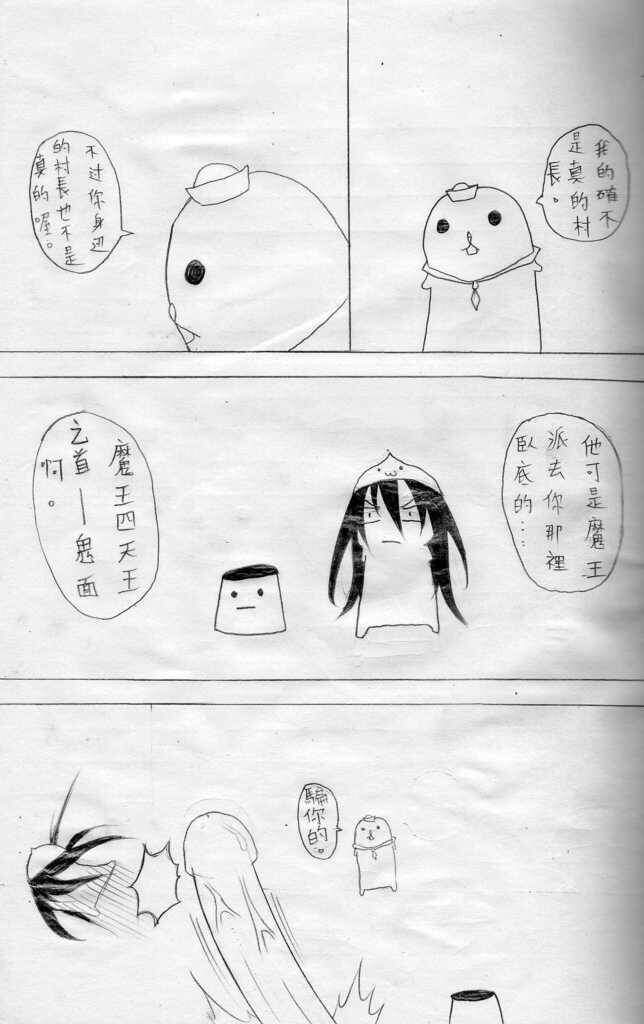 我的確不
是真的村
長。
不过你身边
的村長也不是
真的喔。
他可是魔王
派去你那裡
臥底的…
魔王四天王
之首—鬼面
啊。
騙你的。